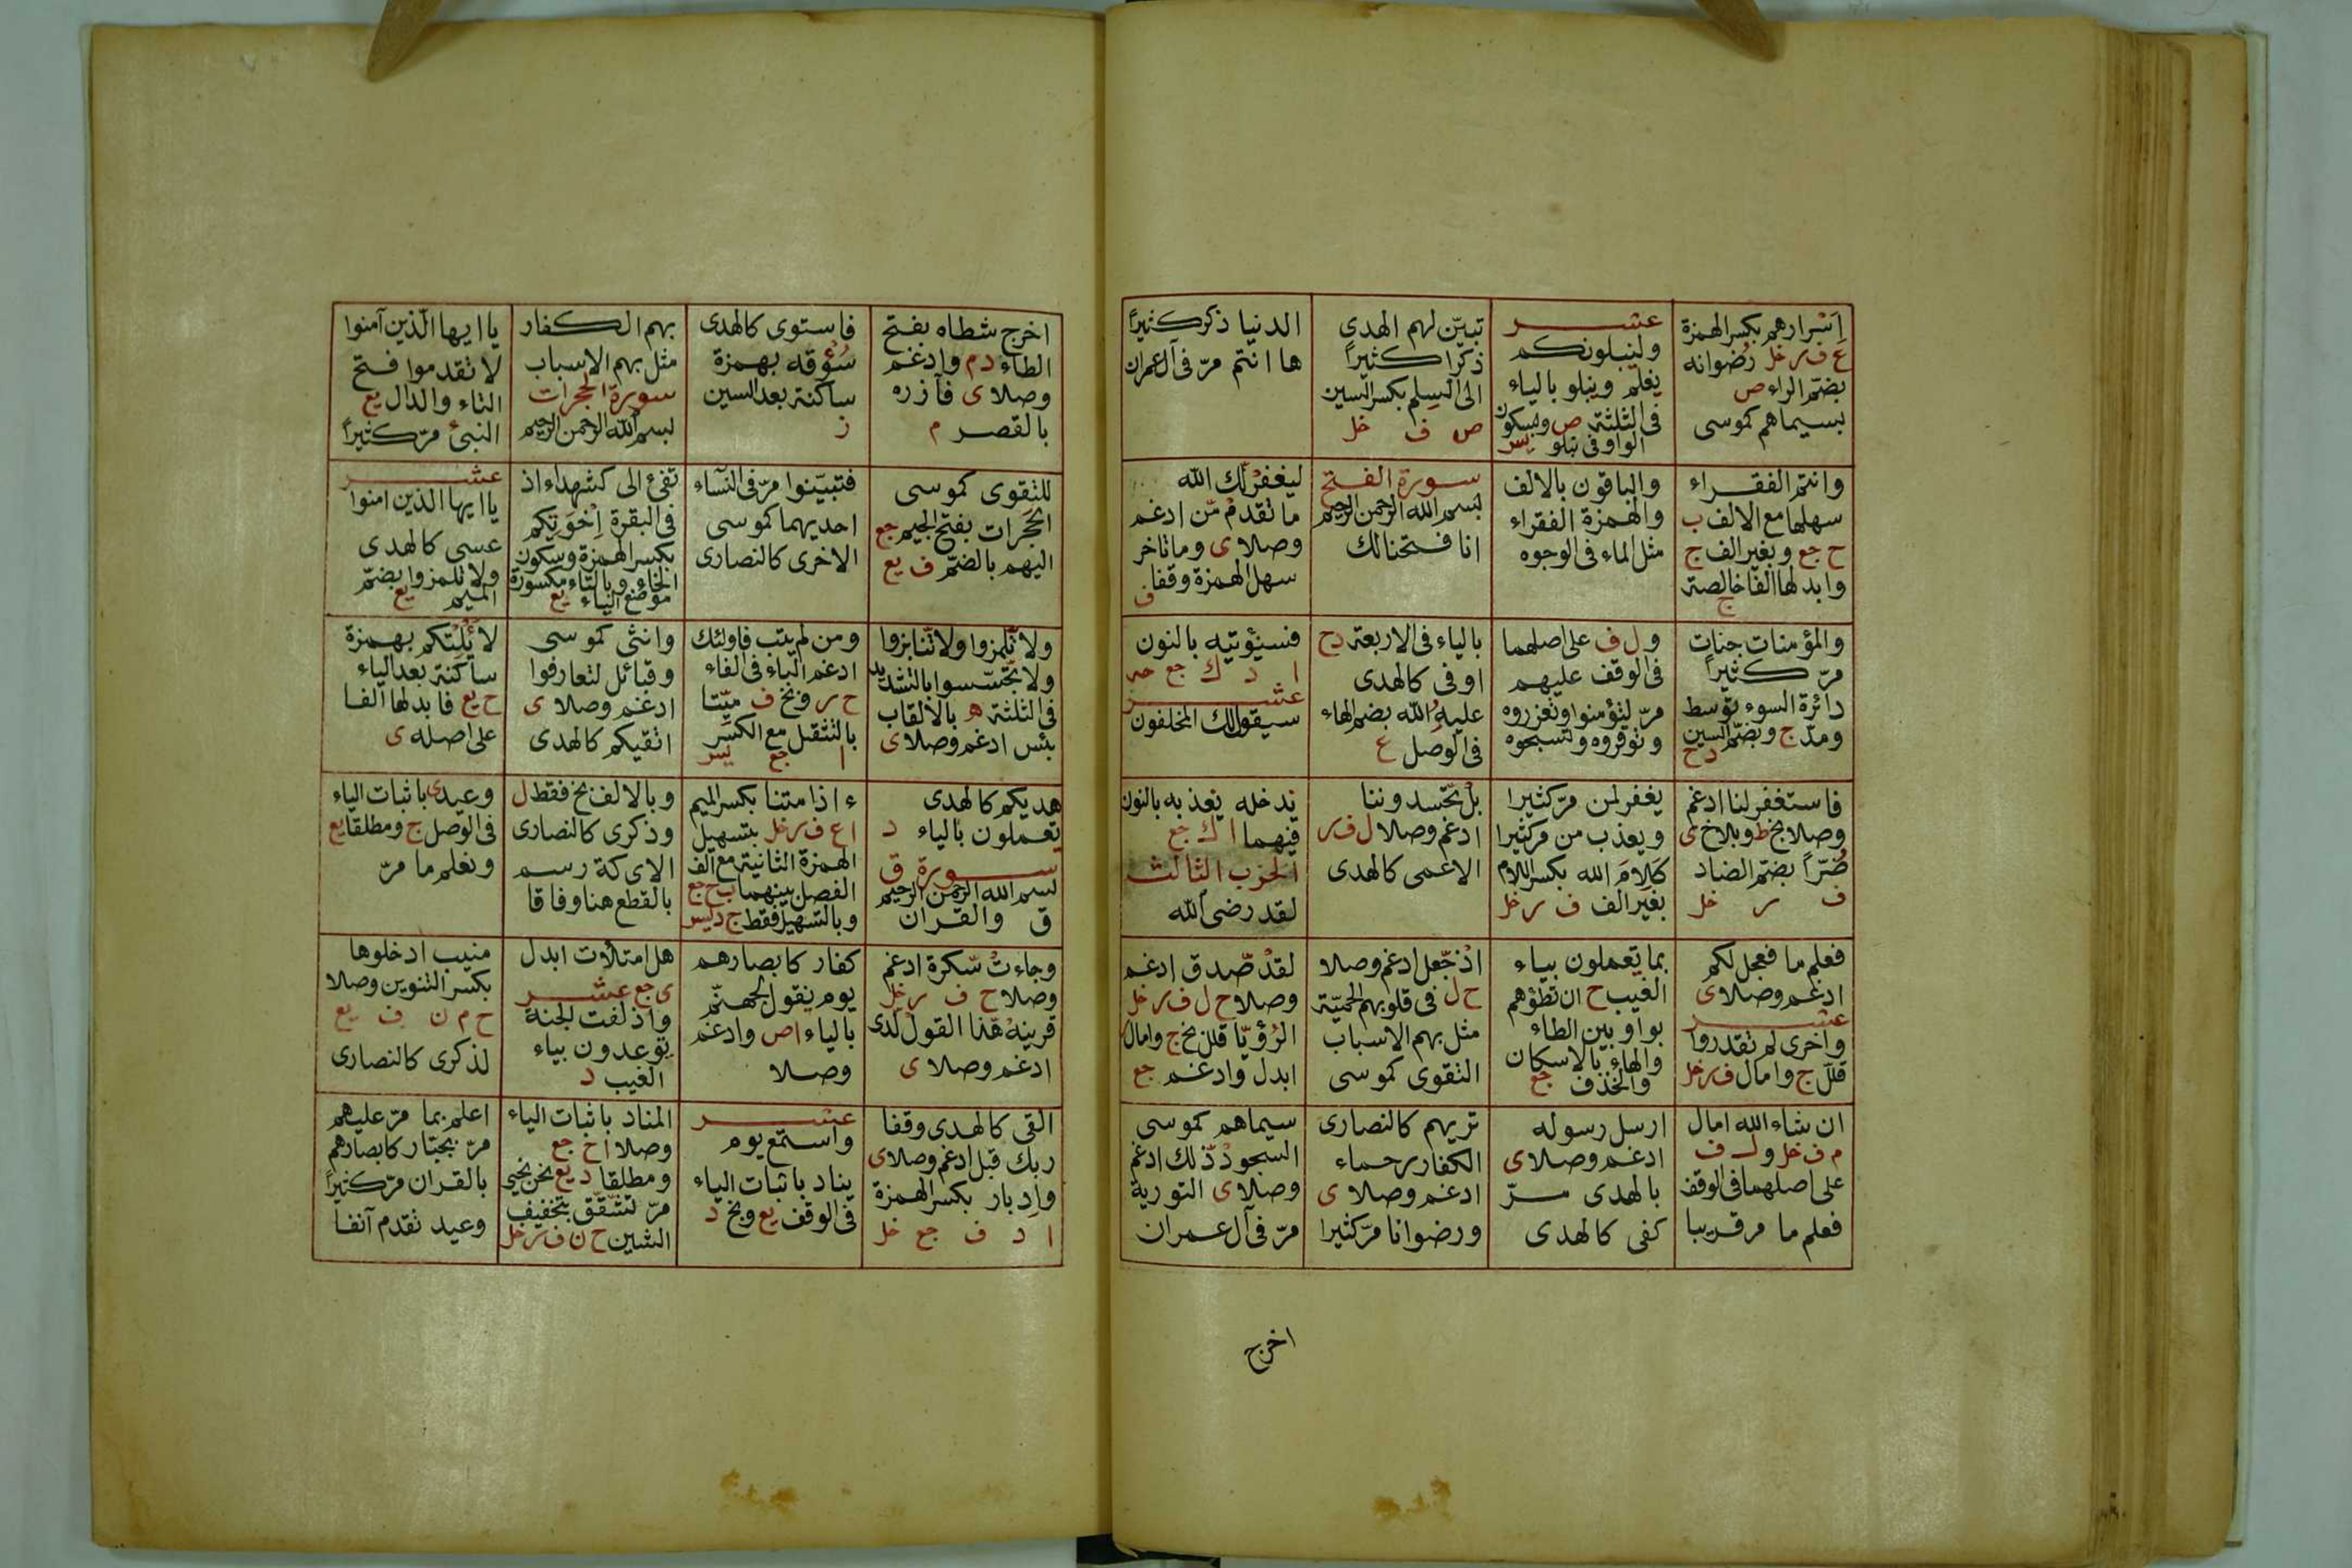 اسرارهم بكسر الهمزة
ع ف ر خل رضوانه
بضم الراء ص
بسيماهم كموسى
عشر
ولنبلونكم
يعلم ويبلو بالياء
فى الثلثة ص وبسكون
الواو فى نبلو يس
تبين لهم الهدى
ذكرا كثيرا
الى السلم بكسر السين
ص ف خل
الدنيا ذكر كثيرا
ها انتم مر فى آل عمران
وانتم الفقراء
سهلها مع الالف ب
ح جع وبغير الف ج
وابدلها الفا خالصة
ج
والباقون بالالف
والهمزة الفقراء
مثل الماء فى الوجوه
سورة الفتح
بسم الله الرحمن الرحيم
انا فتحنا لك
ليغفر لك الله
ما تقدم من ادغم
وصلا ى وما تاخر
سهل الهمزة وقفا
ف
والمؤمنات جنات
مر كثيرا
دائرة السوء توسط
ومد ج وبضم السين
د ح
ول ف على اصلهما
فى الوقف عليهم
مر لتؤمنوا وتعزروه
وتوقروه وتسبحوه
بالياء فى الاربعة د ح
اوفى كالهدى
عليه الله بضم الهاء
فى الوصل ع
فسيؤتيه بالنون
ا د ك جع حه
عشر
سيقول لك المخلفون
فاستغفر لنا ادغم
وصلا بخ ط وبلا خ ى
ضرا بضم الضاد
ف ر خل
يغفر لمن مر كثيرا
ويعذب من مر كثيرا
كلام الله بكسر اللام
بغير الف ف ر خل
بل تحسدوننا
ادغم وصلا ل ف ر
الاعمى كالهدى
ندخله نعذبه بالنون
فيهما ا ك جع
الحزب الثالث
لقد رضى الله
فعلم ما فعجل لكم
ادغم وصلا ى
عشر
واخرى لم تقدروا
قلل ج وامال ف ر خل
بما يعملون بياء
الغيب ح ان تطؤهم
بواو بين الطاء
والهاء بالاسكان
والحذف جع
اذ جعل ادغم وصلا
ح ل فى قلوبهم الحمية
مثل بهم الاسباب
التقوى كموسى
لقد صدق ادغم
وصلا ح ل ف ر خل
الرؤيا قلل بخ ج وامال ر
ابدل وادغم جع
ان شاء الله امال
م ف خل ول ف
على اصلهما فى الوقف
فعلم ما مر قريبا
ارسل رسوله
ادغم وصلا ى
بالهدى مر
كفى كالهدى
تريهم كالنصارى
الكفار رحماء
ادغم وصلا ى
ورضوانا مر كثيرا
سيماهم كموسى
السجود ذلك ادغم
وصلا ى التورية
مر فى آل عمران
اخرج
اخرج شطاه بفتح
الطاء د م وادغم
وصلا ى فآزره
بالقصر م
فاستوى كالهدى
سؤقه بهمزة
ساكنة بعد السين
ز
بهم الكفار
مثل بهم الاسباب
سورة الحجرات
بسم الله الرحمن الرحيم
يا ايها الذين آمنوا
لا تقدموا فتح
التاء والدال يع
النبئ مر كثيرا
للتقوى كموسى
الحجرات بفتح الجيم جع
اليهم بالضم ف يع
فتبينوا مر فى النساء
احديهما كموسى
الاخرى كالنصارى
تفئ الى كشهداء اذ
فى البقرة اخوتكم
بكسر الهمزة وسكون
الخاء وبالتاء مكسورة
موضع الياء يع
عشر
يا ايها الذين امنوا
عسى كالهدى
ولا تلمزوا بضم
الميم يع
ولا تلمزوا ولا تنابزوا
ولا تجسسوا بالتشديد
فى الثلثة ه بالالقاب
بئس ادغم وصلا ى
ومن لم يتب فاولئك
ادغم الباء فى الفاء
ح ر وبخ ف ميتا
بالتثقيل مع الكسر
ا جع يس
وانثى كموسى
وقبائل لتعارفوا
ادغم وصلا ى
اتقيكم كالهدى
لا يألتكم بهمزة
ساكنة بعد الياء
ح يع فابدلها الفا
على اصله ى
هديكم كالهدى
تعملون بالياء د
سورة ق
بسم الله الرحمن الرحيم
ق والقران
ء اذا متنا بكسر الميم
ا ع ف ر خل بتسهيل
الهمزة الثانية مع الف
الفصل بينهما ب ح جع
وبالتسهيل فقط ج د يس
وبالالف بخ فقط ل
وذكرى كالنصارى
الايكة رسم
بالقطع هنا وفاقا
وعيدى باثبات الياء
فى الوصل ج ومطلقا يع
ونعلم ما مر
وجاءت سكرة ادغم
وصلا ح ف ر خل
قرينه هذا القول لدى
ادغم وصلا ى
كفار كابصارهم
يوم يقول لجهنم
بالياء ا ص وادغم
وصلا
هل امتلأت ابدل
ى جع عشر
وازلفت الجنة
يوعدون بياء
الغيب د
منيب ادخلوها
بكسر التنوين وصلا
ح م ن ف يع
لذكرى كالنصارى
القى كالهدى وقفا
ربك قبل ادغم وصلا ى
وادبار بكسر الهمزة
ا د ف جع خل
عشر
واستمع يوم
يناد باثبات الياء
فى الوقف يع وبخ د
المناد باثبات الياء
وصلا ا ح جع
ومطلقا د يع نحن نحيى
مر تشقق بتخفيف
الشين ح ن ف ر خل
اعلم بما مر عليهم
مر بجبار كابصارهم
بالقران مر كثيرا
وعيد تقدم آنفا